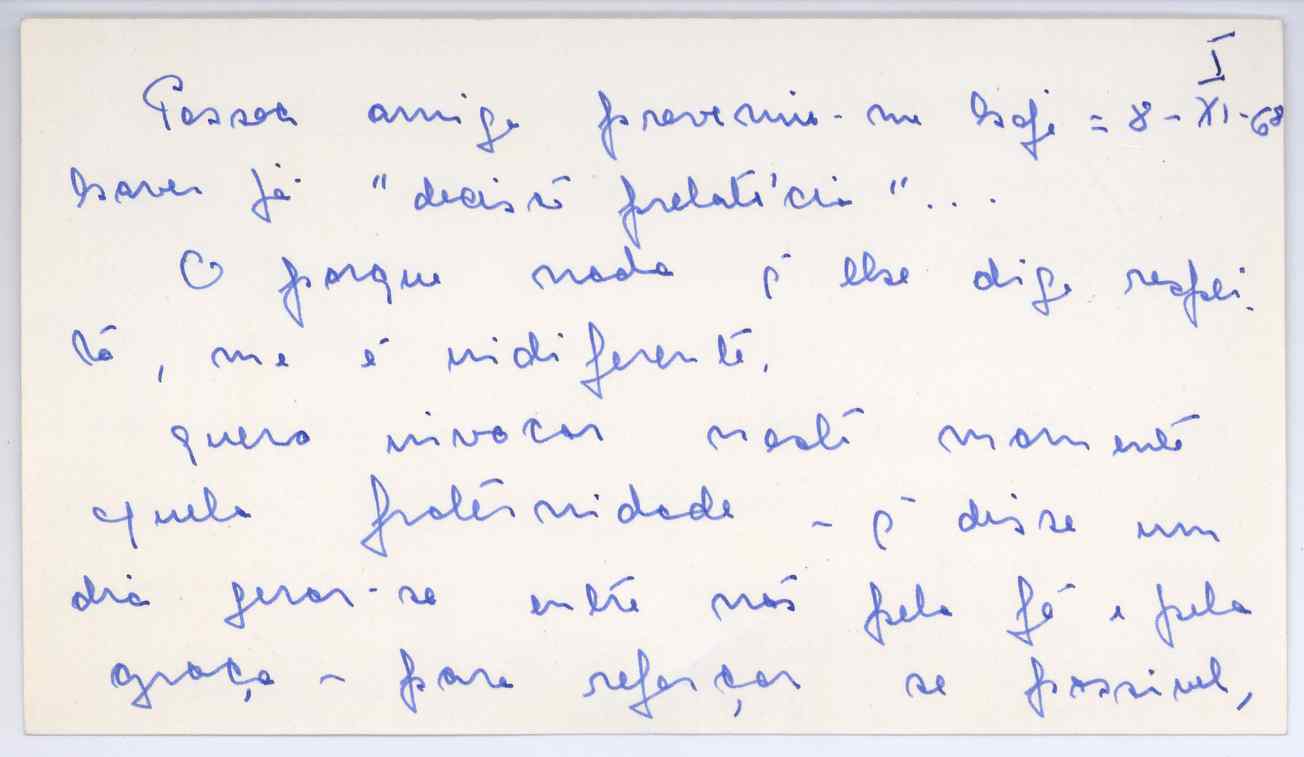 I
Pessoa amiga preveniu-me hoje = 8-XI-68
haver já "decisão prelatícia"...
O porque nada q̃ lhe diga respei-
to, me é indiferente,
quero invocar neste momento
aquela fraternidade - q̃ disse um
dia gerar-se entre nós pela fé e pela
graça - para reforçar se possivel,